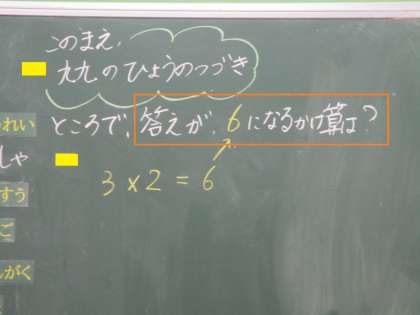 このまえ、
九九のひょうのつづき
ところで、答えが、6になるかけ算は?
3×2=6
れい
しゃ
すう
ご
がく